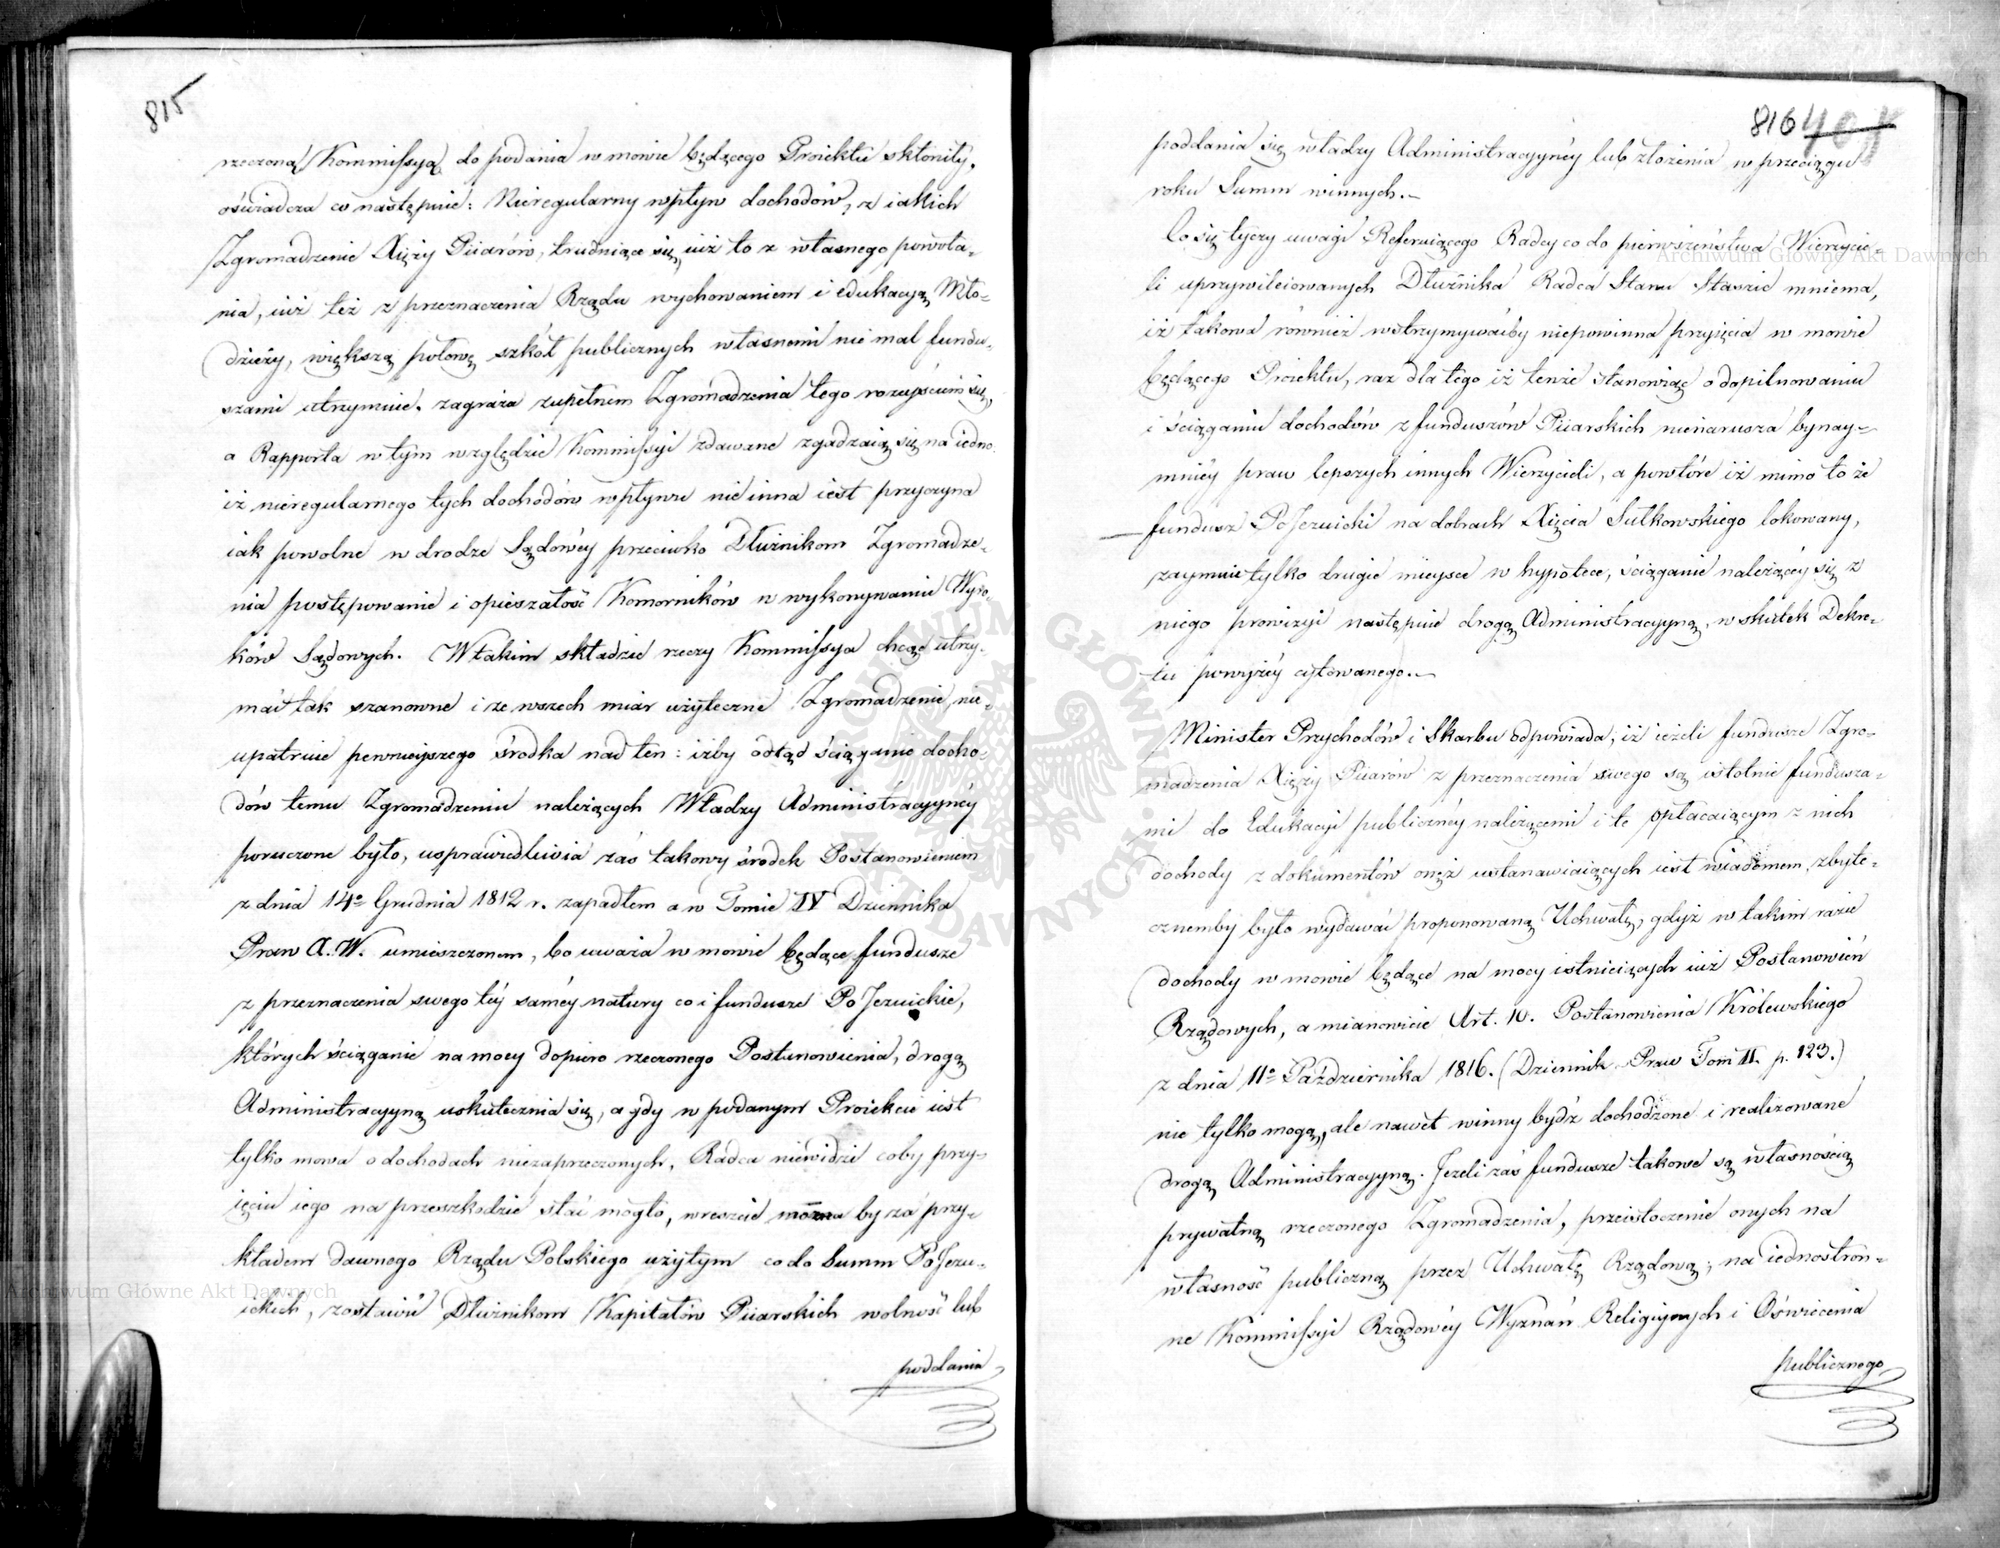 815
rzeczoną Kommissyą do podania w mowie będącego Proiektu skłoniły,
oświadcza co następuie: Nieregularny wpływ dochodów, z iakich
Zgromadzenie Xięży Piiarów, trudniące się, iuż to z własnego powoła-
nia, iuż też z przeznaczenia Rządu wychowaniem i edukacyą Mło-
dzieży, większą połowę szkół publicznych własnemi nie mal fundu-
szami utrzymuie, zagraża zupełnem Zgromadzenia tego rozejściem się,
a Rapporta w tym względzie Kommissyi zdawane zgadzaią się na iedno
iż nieregularnego tych dochodów wpływu nie inna iest przyczyna
iak powolne w drodze Sądowéy przeciwko Dłużnikom Zgromadze-
nia postępowanie i opieszałość Komorników w wykonywaniu Wyro-
ków Sądowych. W takim składzie rzeczy Kommissya chcąc utrzy-
mać tak szanowne i ze wszech miar użyteczne Zgromadzenie nie
upatruie pewnieyszego środka nad ten: iżby odtąd ściąganie docho-
dów temu Zgromadzeniu należących Władzy Administracyynéy
poruczone było, usprawiedliwia zaś takowy środek Postanowieniem
z dnia 14o Grudnia 1812 r. zapadłem a w Tomie IV Dziennika
Praw X. W. umieszczonem, bo uważa w mowie będące fundusze
z przeznaczenia swego téy saméy natury co i fundusze PoJezuickie,
których ściąganie na mocy dopiero rzeczonego Postanowienia, drogą
Administracyyną uskutecznia się, a gdy w podanym Proiekcie iest
tylko mowa o dochodach niezaprzeczonych, Radca niewidzi coby przy-
ięciu iego na przeszkodzie stać mogło, wreszcie można by za przy-
kładem dawnego Rządu Polskiego użytym co do Summ PoJezu-
ickich, zostawić Dłużnikom Kapitałów Piiarskich wolność lub
poddania
816 401
poddania się władzy Administracyynéy lub złożenia w przeciągu
roku Summ winnych.-
Co się tyczy uwagi Referuiącego Radcy co do pierwszeństwa Wierzycie-
li uprzywileiowanych Dłużnika Radca Stanu Staszic mniema,
iż takowa również wstrzymywaćby niepowinna przyięcia w mowie
będącego Proiektu, raz dla tego iż tenże stanowiąc o dopilnowaniu
i ściąganiu dochodów z funduszów Piiarskich nienarusza bynay-
mniéy praw lepszych innych Wierzycieli, a powtóre iż mimo to że
fundusz PoJezuicki na dobrach Xięcia Sułkowskiego lokowany,
zaymuie tylko drugie mieysce w hypotece, ściąganie należącéy się z
niego prowizyi następuie drogą Administracyyną, w skutek Dekre-
tu powyżéy cytowanego.-
Minister Przychodów i Skarbu odpowiada, iż ieżeli fundusze Zgro-
madzenia Xięży Piiarów z przeznaczenia swego są istotnie fundusza-
mi do Edukacyi publicznéy należącemi i te opłacaiącym z nich
dochody z dokumentów onęż ustanawiaiących iest wiadomem, zbyte-
cznemby było wydawać proponowaną Uchwałę, gdyż w takim razie
dochody w mowie będące na mocy istnieiących iuż Postanowień
Rządowych, a mianowicie Art. 10. Postanowienia Królewskiego
z dnia 11o Października 1816. (Dziennik Praw Tom II. p. 123.)
nie tylko mogą, ale nawet winny bydź dochodzone i realizowane
drogą Administracyyną. Jeżeli zaś fundusze takowe są własnością
prywatną rzeczonego Zgromadzenia, przeistoczenie onych na
własność publiczną przez Uchwałę Rządową, na iednostron-
ne Kommissyi Rządowéy Wyznań Religiynych i Oświecenia
publicznego
Archiwum Główne Akt Dawnych
Archiwum Główne Akt Dawnych
ARCHIWUM GŁÓWNE AKT DAWNYCH